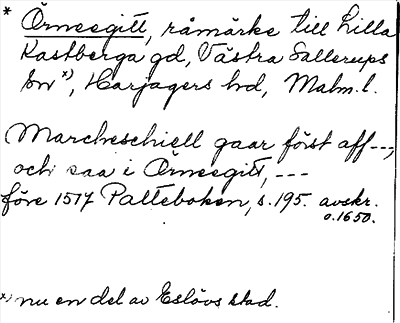 * Örneegitt, råmärke till Lilla
Kastberga gd, Västra Sallerups
sn x), Harjagers hd, Malm. l.
Marcheschiell gaar först aff --,
och saa i Örneegitt, ---
före 1517 Palteboken, s. 195. avskr.
o. 1650.
x) nu en del av Eslövs stad.